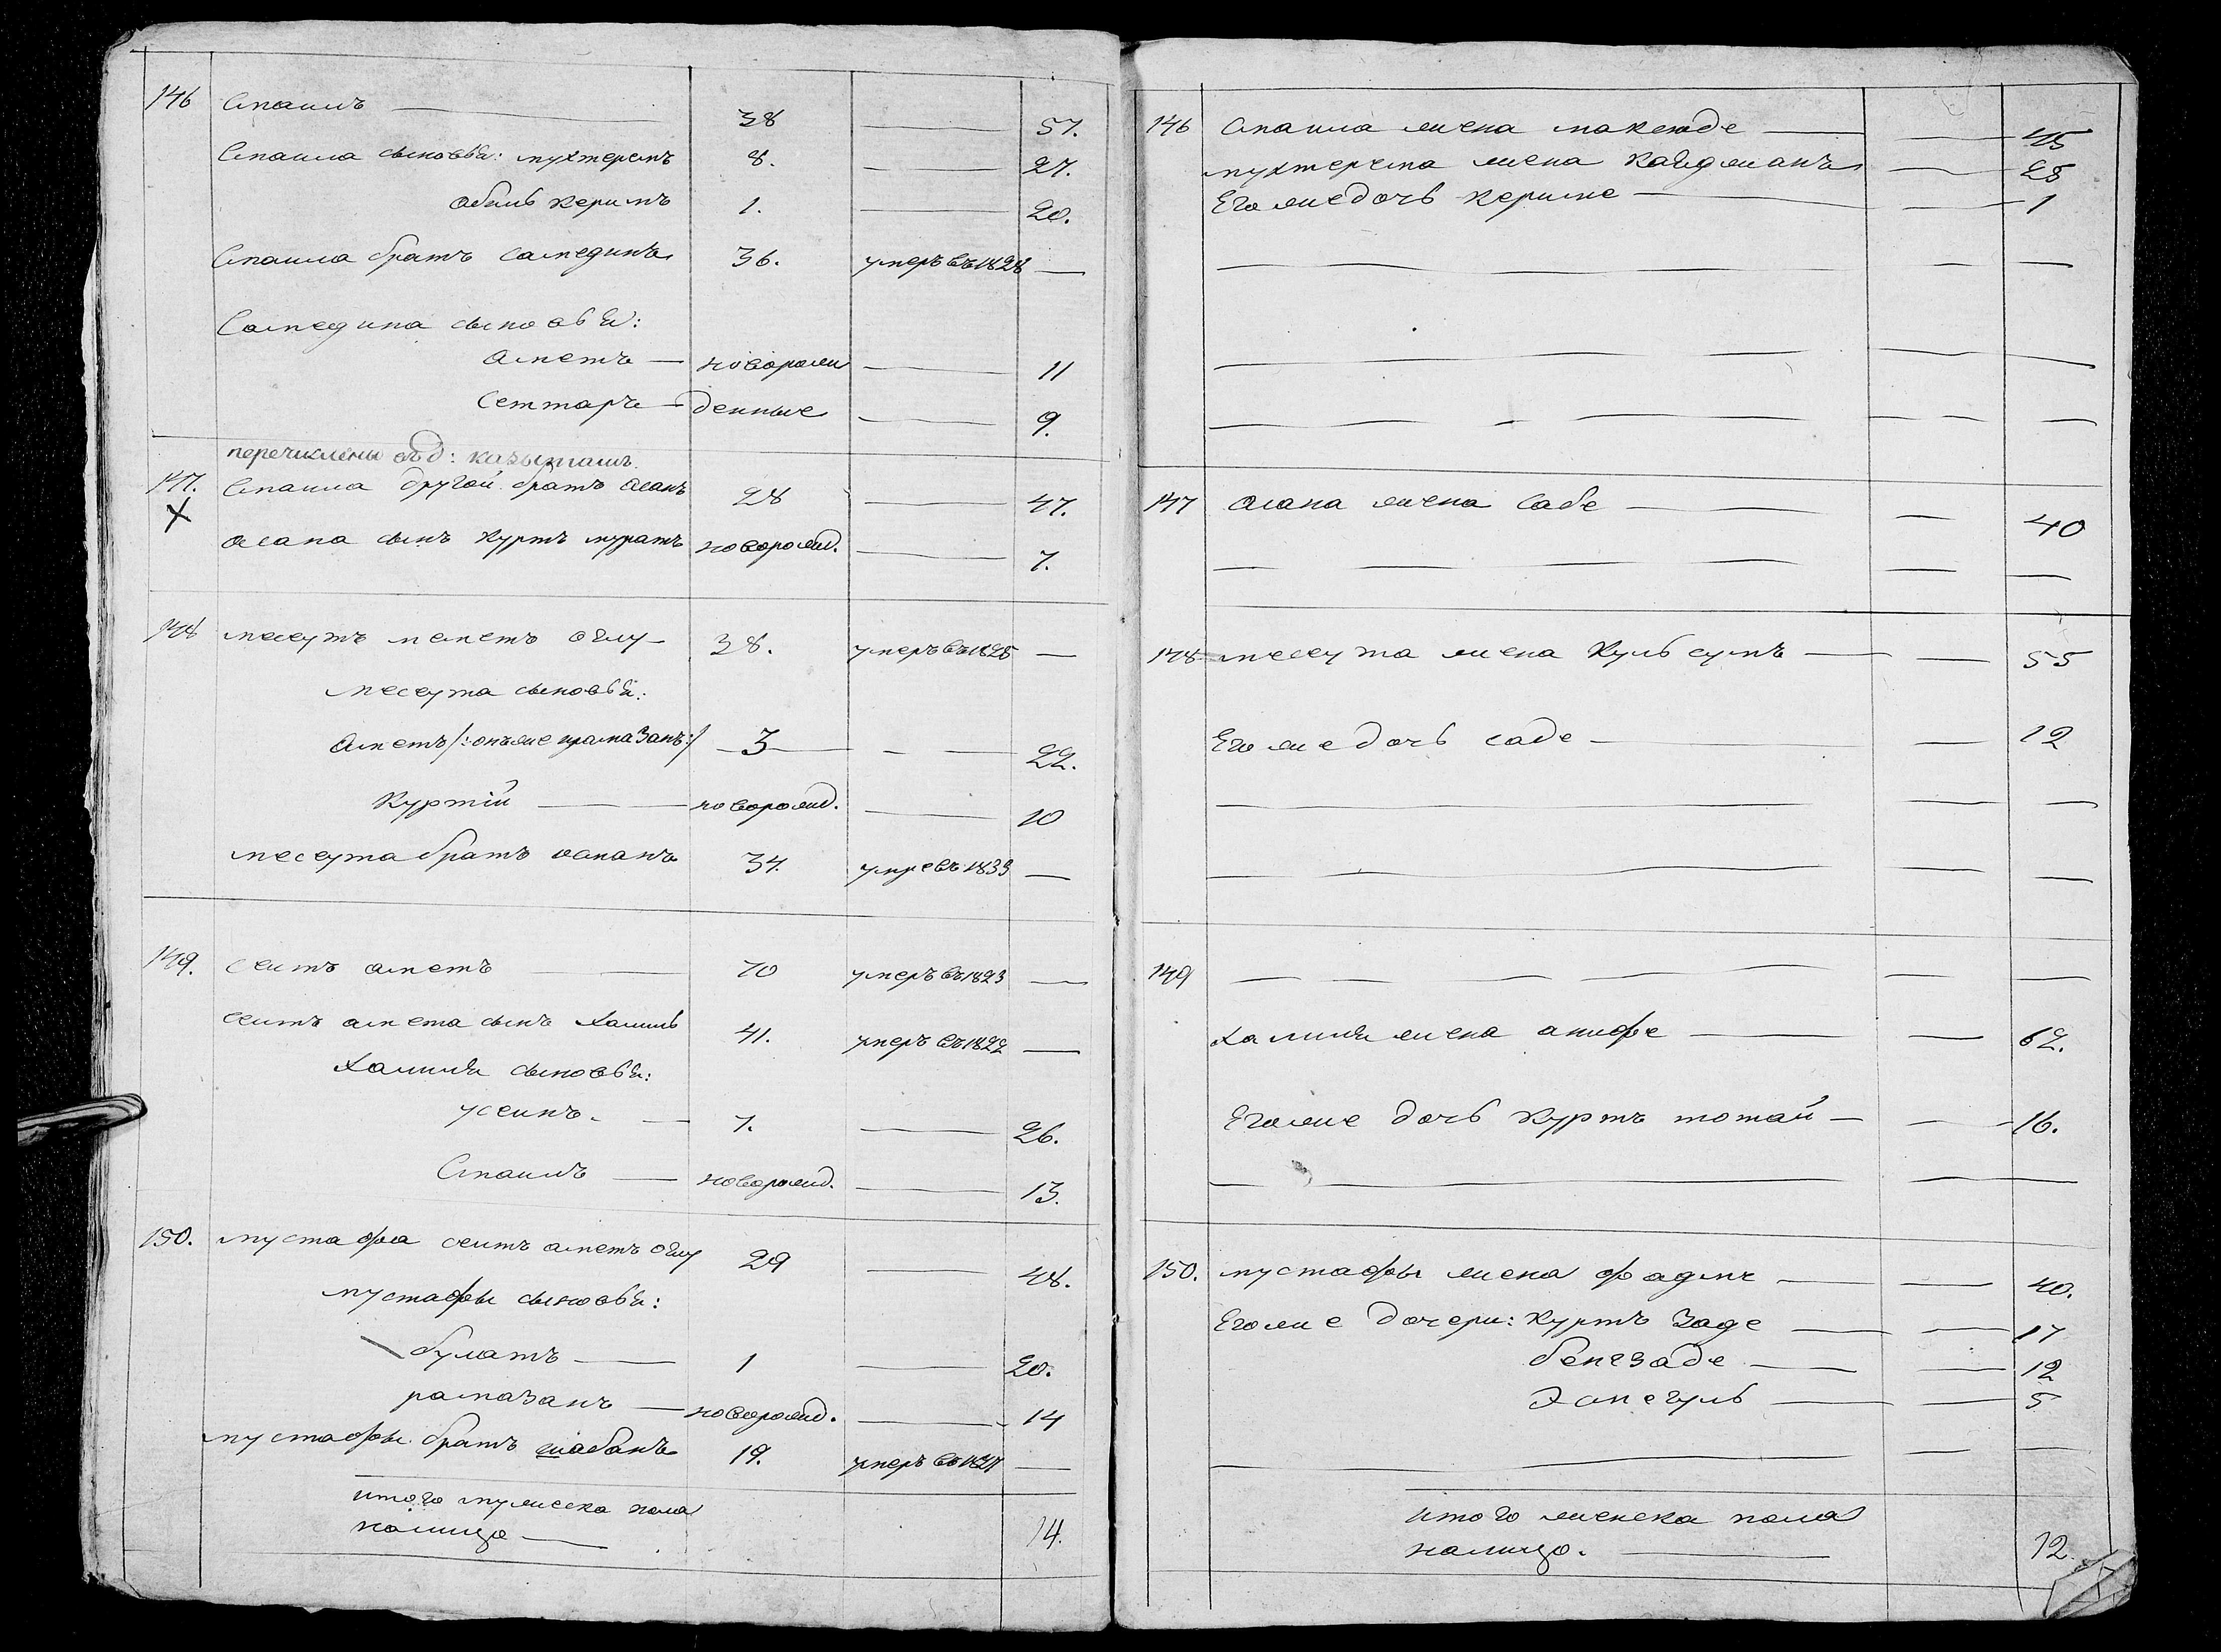 146 Смаилъ — 38 — 57.
Смаила сыновья: мухтеремъ 8. — 27.
абиль керимъ 1. — 20.
Смаила братъ самединъ 36. умеръ въ 1828 —
Самедина сыновья:
аметъ — новорож — 11
Сеттаръ — денные — 9.
перечислены въ д:
147. Смаила другой братъ асанъ 28 — 47.
X
асана сынъ куртъ муратъ новорожд. — 7.
148 месутъ меметъ оглу — 38. умеръ въ 1825 —
месута сыновья:
аметъ /: онъ же рамазанъ:/ — 3 — — 22.
Куртiй — новорожд. — 10
месута братъ османъ 34. умре въ 1833 —
149. сеитъ аметъ — 70 умеръ въ 1823 —
сеитъ амета сынъ халиль 41. умеръ въ 1822 —
халиля сыновья:
усеинъ. — 7. — 26.
Смаилъ — новорожд. — 13.
150. мустафа сеитъ аметъ оглу 29 — 48.
мустафы сыновья:
булатъ — 1 — 20.
рамазанъ — новорожд. — 14
мустафы братъ шабанъ 19. умеръ въ —
итого мужеска пола
налицо — 14.
146 Смаила жена — — 45
мухтерема жена — 25
Его же дочь кериме — — 1
147 асана жена саде — — 40
148 месута жена Кульсумъ — — 55
Его же дочь саде — — 12
149
халиля жена анифе — — 62.
Его же дочь Куртъ тотай — — 16.
150. мустафы жена фадме — — 40.
Его же дочери: Куртъ заде — — 17
бенгзаде — — 12
Эсмегуль — — 5
итого женска пола
налицо. — 12.